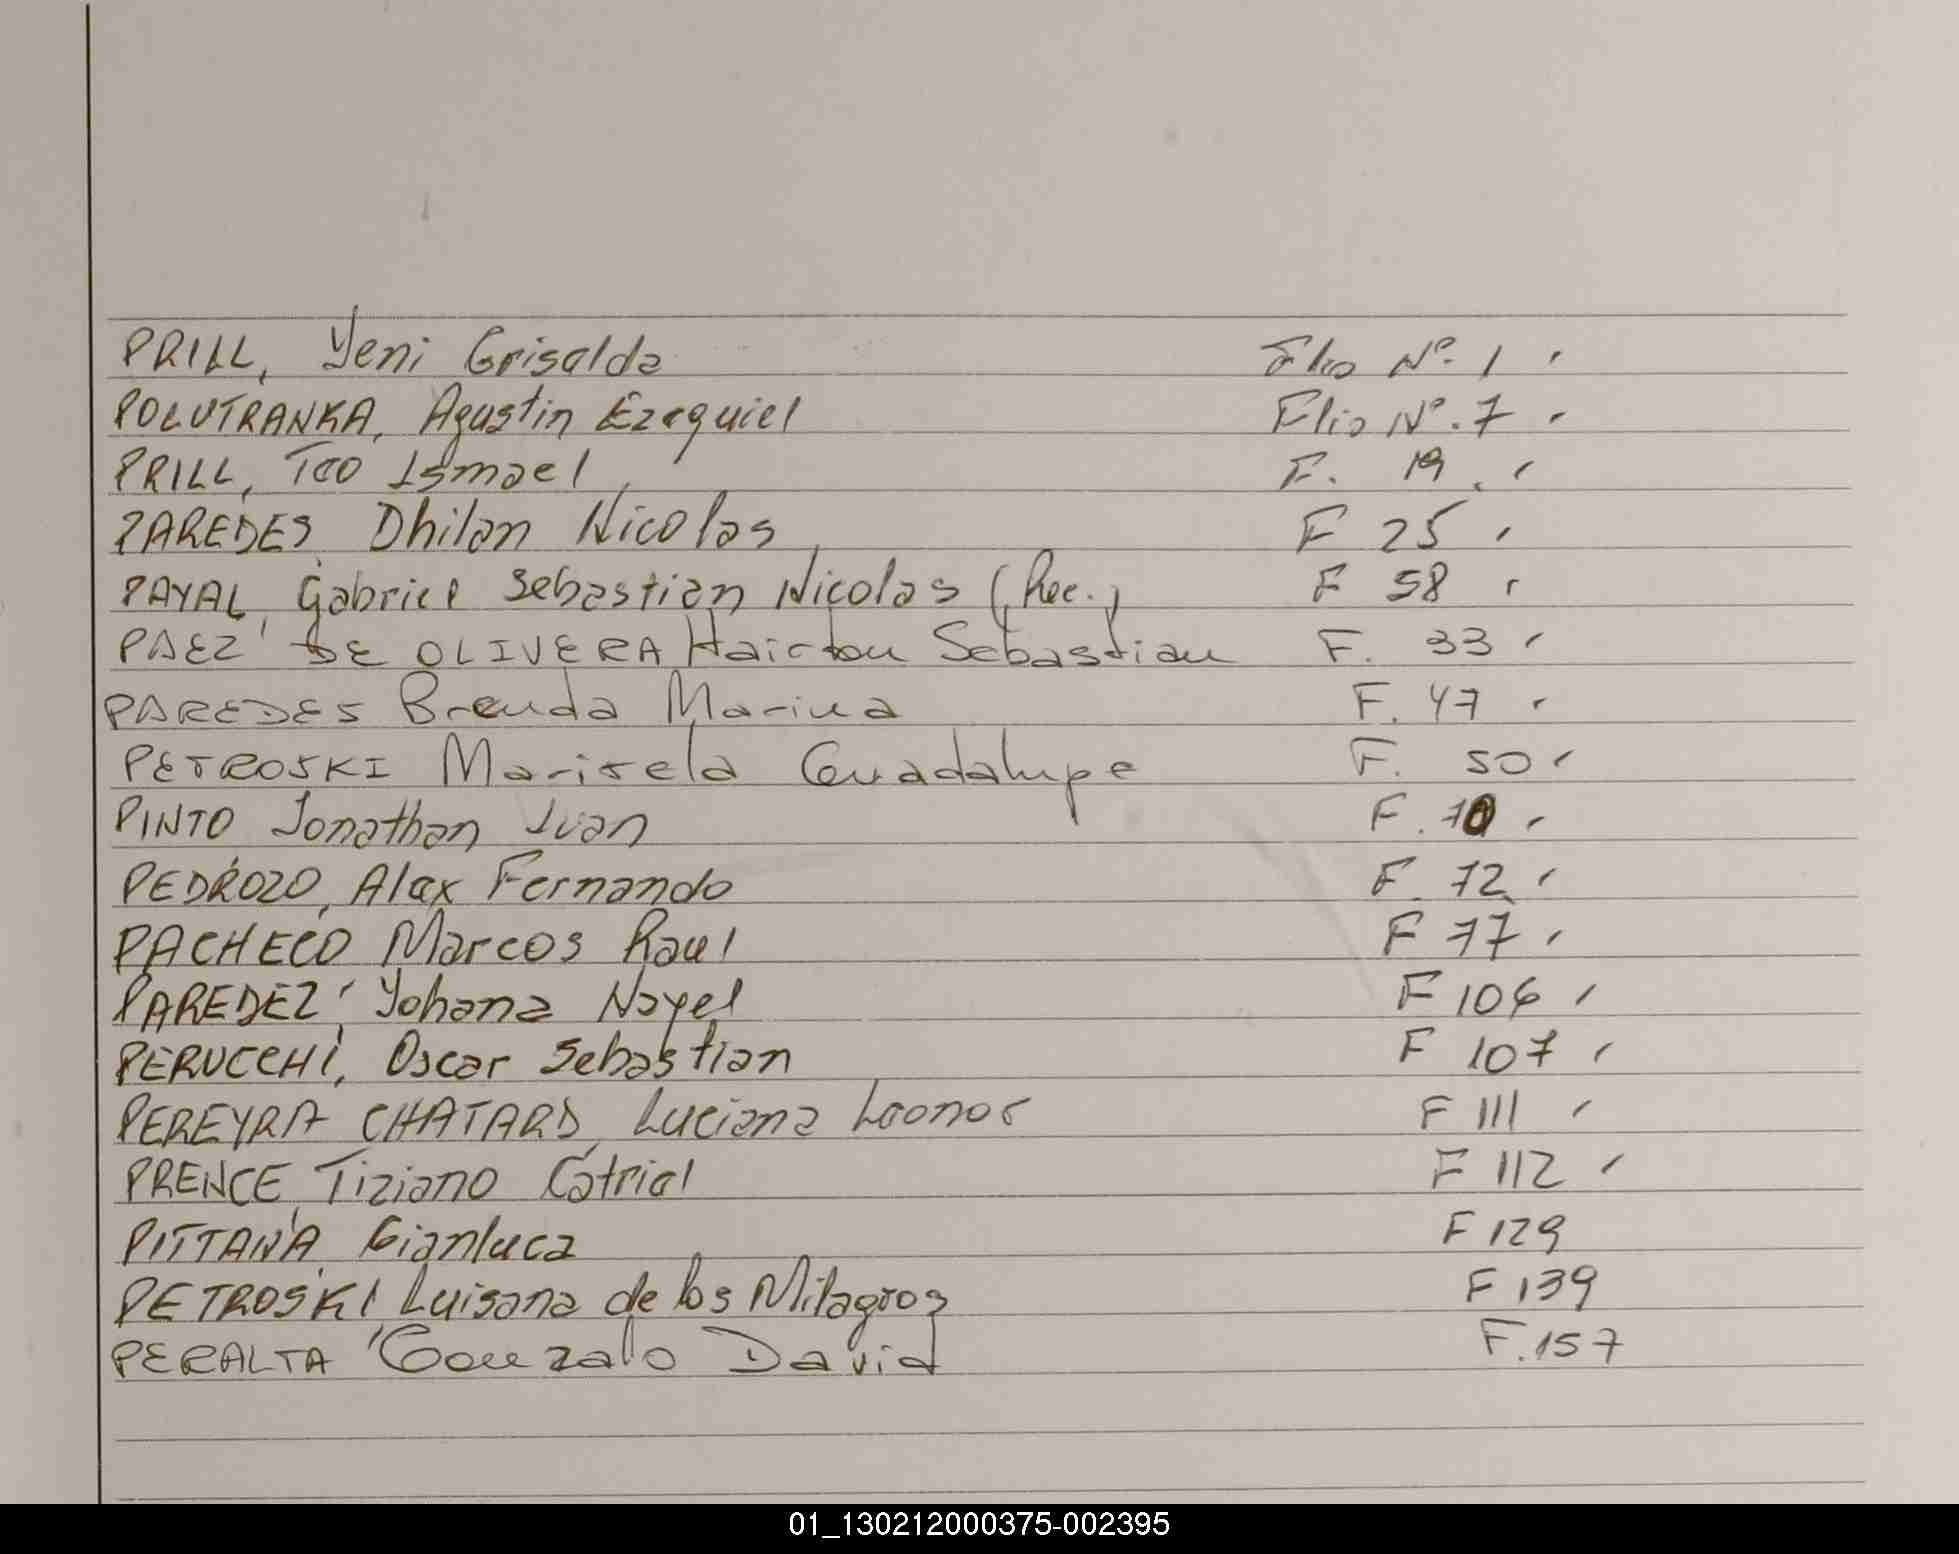 PRILL, Yeni Grisalda Flio Nº. 1
POLUTRANKA, Agustin Ezequiel Flio Nº. 7
PRILL, Teo Ismael F. 19.
PAREDES, Dhilan Nicolas F 25
PAYAL, Gabriel Sebastian Nicolas (Rec.) F 58
PAEZ DE OLIVERA Hairton Sebastian F. 33
PAREDES Brenda Marina F. 47
PETROSKI Marisela Guadalupe F. 50
PINTO Jonathan Ivan F. 70
PEDROZO, Alex Fernando F. 72
PACHECO Marcos Raul F 77
PAREDEZ, Yohana Nayel F 106
PERUCCHI, Oscar Sebastian F 107
PEREYRA CHATARD, Luciana Leonor F 111
PRENCE, Tiziano Catriel F 112
PITTANA, Gianluca F 129
PETROSKI, Luisana de los Milagros F 139
PERALTA Gonzalo David F. 157
01_130212000375-002395